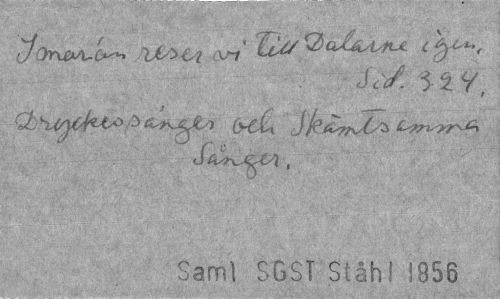 I morån reser vi till Dalarne igen.
Sid. 324.
Dryckessånger och Skämtsamma
Sånger.
Saml SGST Ståhl 1856